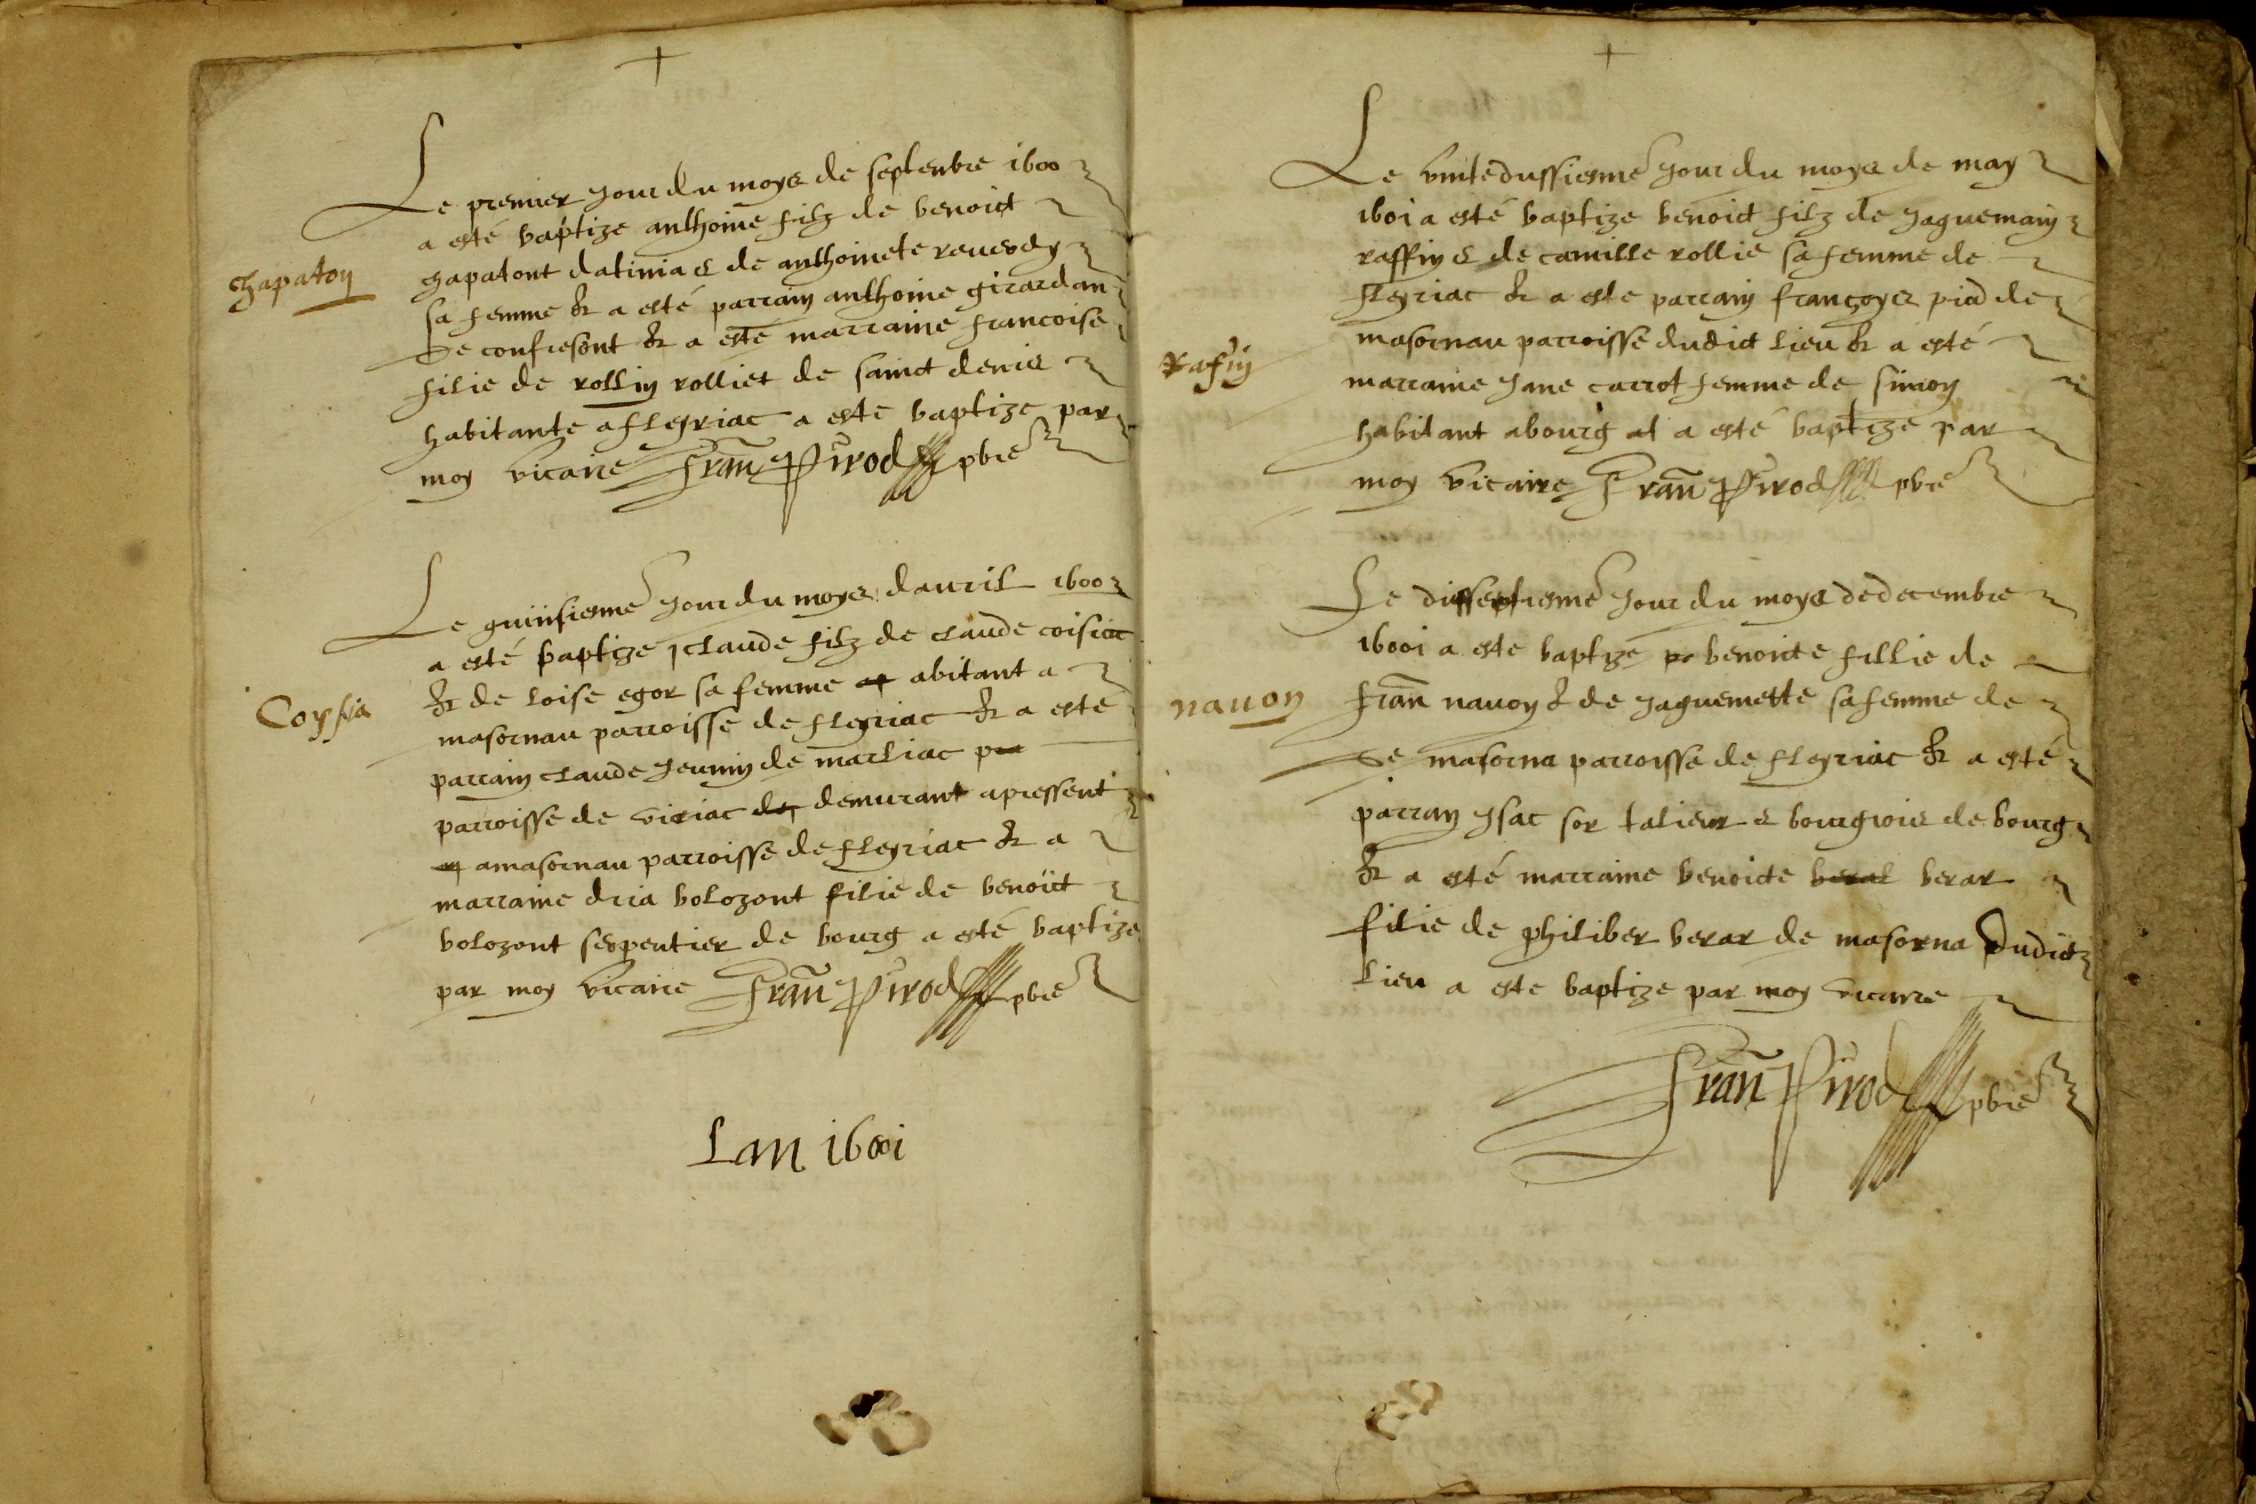 Le premier jour du moys de septenbre 1600
a esté baptize anthoine filz de benoict
chapaton
chapatont datinia & de anthoinete reuerdy
sa femme & a esté parrain anthoine girardan
de confresont & a esté marraine francoise
filie de rollin rolliet de sainct denis
habitante a flegriac a este baptize par
moy vicaire Fran Pirod pbre
Le quinsiesme jour du moys dauril 1600
a esté baptize claude filz de claude coisiac
Coysia
& de loise egor sa femme abitant a
masornau parroisse de flegriac & a esté
parrain claude jeunin de marliac
parroisse de viriac demurant apressent
amasornau parroisse de flegriac & a
marraine dria bolozont filie de benoict
bolozont serpentier de bourg a esté baptize
par moy vicaire Fran Pirod pbre
Lan 1601
Le vintedussiesme jour du moys de may
1601 a esté baptize benoict filz de jaguemain
raffin & de camille rollie sa femme de
flegriac & a este parrain françoys piad de
Rafin
masornau parroisse dudict lieu & a esté
marraine jane carrot femme de simon
habitant abourg at a esté baptize par
moy vicaire Fran Pirod pbre
Le disseptiesme jour du moys dedecembre
16001 a este baptize benoicte fillie de
nauon
fran nauon & de jaguemette sa femme de
de masorna parroisse de flegriac & a esté
parran jsac sor talieur & bourgiois de bourg
& a esté marraine benoicte beral berar
filie de philiber berar de masorna dudict
lieu a este baptize par moy vicaire
Fran Pirod pbre